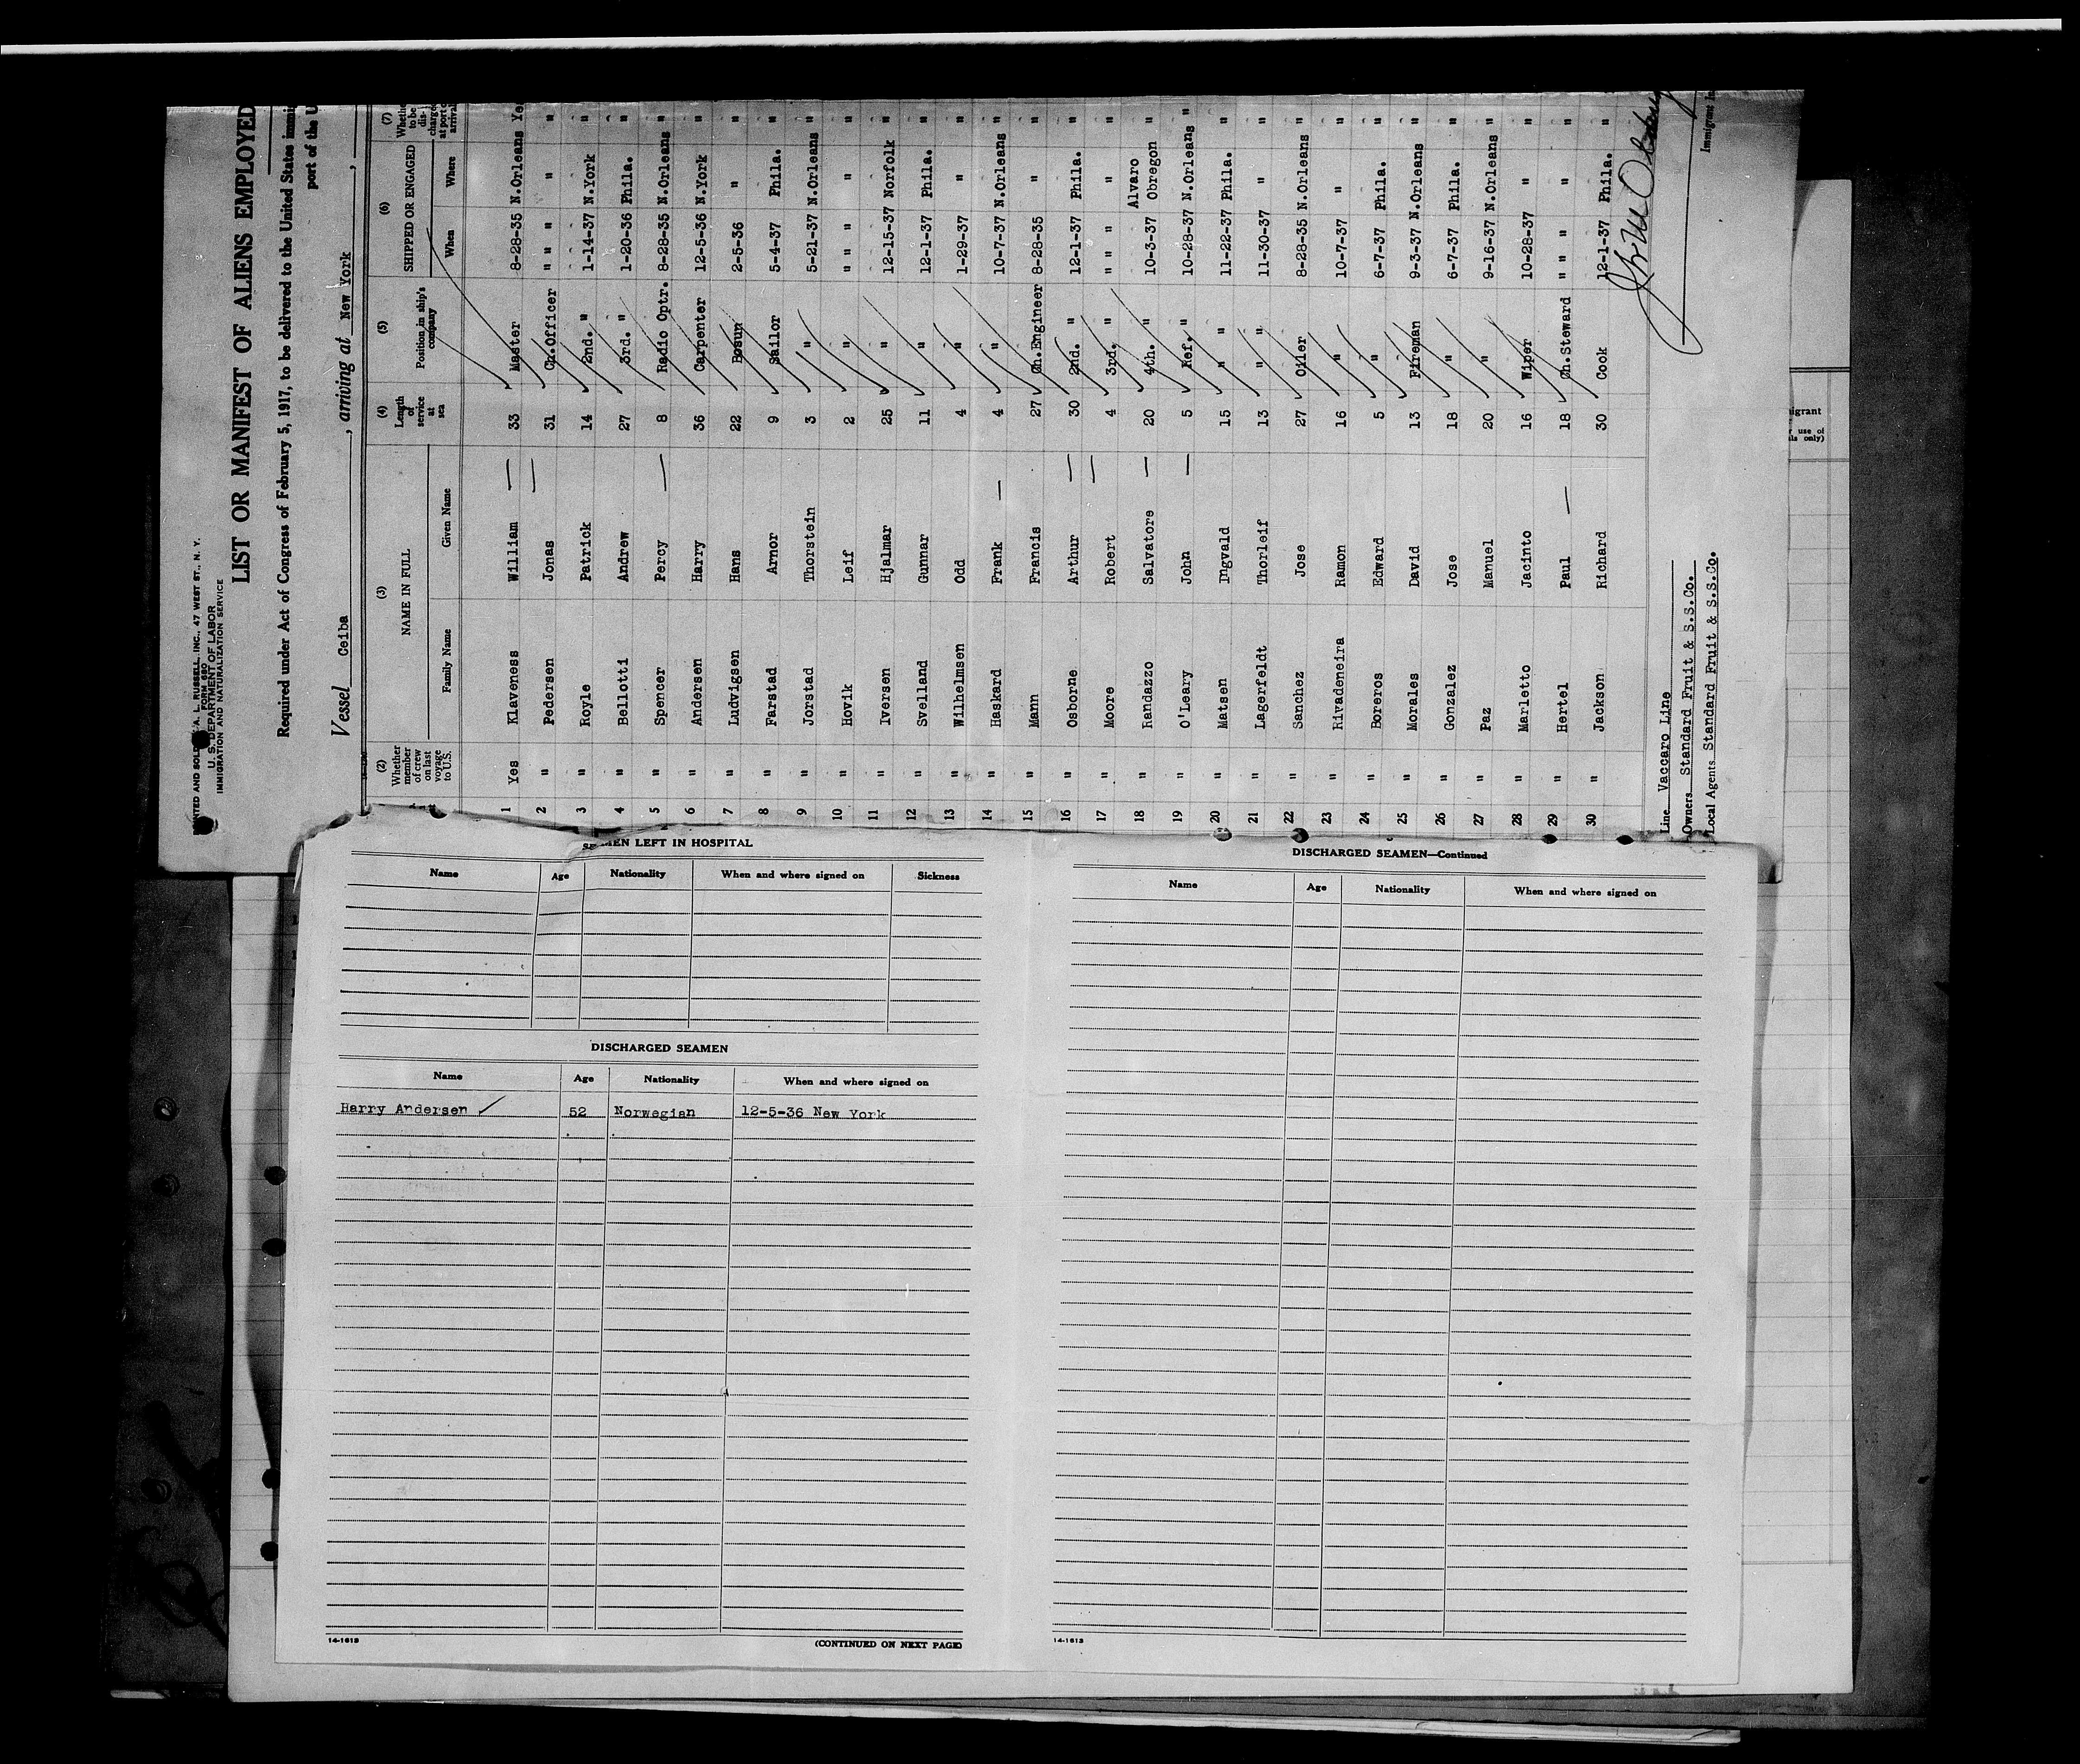 PRINTED AND SOLD BY A. L. RUSSELL, INC., 47 WEST ST., N. Y.
FORM 680
U. S. DEPARTMENT OF LABOR
IMMIGRATION AND NATURALIZATION SERVICE
LIST OR MANIFEST OF ALIENS EMPLOYED
Required under Act of Congress of February 5, 1917, to be delivered to the United States immi
port of the U
Vessel Ceiba, arriving at New York,
(2) (3) (4) (5) (6) (7)
Whether member of crew on last voyage to U.S. NAME IN FULL Length of service at sea Position in ship's company SHIPPED OR ENGAGED Whether to be discharged at port of arrival
Family Name Given Name When Where
1 Yes Klaveness William — 33 Master 8-28-35 N.Orleans Ye
2 " Pedersen Jonas — 31 Ch.Officer " " " " "
3 " Royle Patrick 14 2nd. " 1-14-37 N.York "
4 " Bellotti Andrew 27 3rd. " 1-20-36 Phila. "
5 " Spencer Percy — 8 Radio Optr. 8-28-35 N.Orleans "
6 " Andersen Harry 36 Carpenter 12-5-36 N.York "
7 " Ludvigsen Hans 22 Bosun 2-5-36 " "
8 " Farstad Arnor 9 Sailor 5-4-37 Phila. "
9 " Jorstad Thorstein 3 " 5-21-37 N.Orleans "
10 " Hovik Leif 2 " " " " " "
11 " Iversen Hjalmar 25 " 12-15-37 Norfolk "
12 " Svelland Gunnar 11 " 12-1-37 Phila. "
13 " Wilhelmsen Odd 4 " 1-29-37 " "
14 " Haskard Frank — 4 " 10-7-37 N.Orleans "
15 " Mann Francis 27 Ch.Engineer 8-28-35 " "
16 " Osborne Arthur — 30 2nd. " 12-1-37 Phila. "
17 " Moore Robert — 4 3rd. " " " " " "
18 " Randazzo Salvatore — 20 4th. " 10-3-37 Alvaro Obregon "
19 " O'Leary John — 5 Ref. " 10-28-37 N.Orleans "
20 " Matsen Ingvald 15 " " 11-22-37 Phila. "
21 " Lagerfeldt Thorleif 13 " " 11-30-37 " "
22 " Sanchez Jose 27 Oiler 8-28-35 N.Orleans "
23 " Rivadeneira Ramon 16 " 10-7-37 " "
24 " Boreros Edward 5 " 6-7-37 Phila. "
25 " Morales David 13 Fireman 9-3-37 N.Orleans "
26 " Gonzalez Jose 18 " 6-7-37 Phila. "
27 " Paz Manuel 20 " 9-16-37 N.Orleans "
28 " Marletto Jacinto 16 Wiper 10-28-37 " "
29 " Hertel Paul — 18 Ch.Steward " " " " "
30 " Jackson Richard 30 Cook 12-1-37 Phila. "
Line Vaccaro Line
Owners Standard Fruit & S.S.Co.
Local Agents Standard Fruit & S.S.Co.
Immigrant In
igrant
use of
ls only)
SEAMEN LEFT IN HOSPITAL
Name Age Nationality When and where signed on Sickness
DISCHARGED SEAMEN
Name Age Nationality When and where signed on
Harry Andersen ✓ 52 Norwegian 12-5-36 New York
14-1613
(CONTINUED ON NEXT PAGE)
DISCHARGED SEAMEN—Continued
Name Age Nationality When and where signed on
14-1613